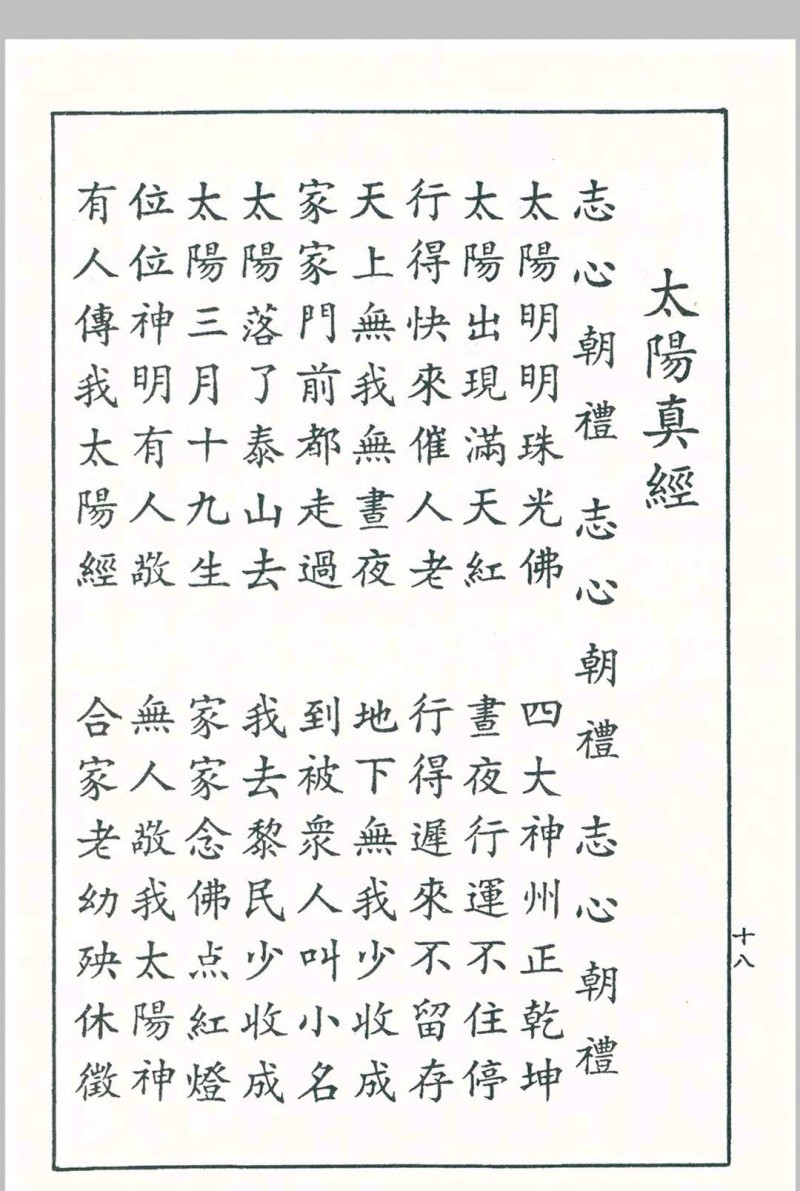 太陽真經
志心朝禮 志心朝禮 志心朝禮
太陽明明珠光佛 四大神州正乾坤
太陽出現滿天紅 晝夜行運不住停
行得快來催人老 行得遲來不留存
天上無我無晝夜 地下無我少收成
家家門前都走過 到被衆人叫小名
太陽落了泰山去 我去黎民少收成
太陽三月十九生 家家念佛点紅燈
位位神明有人敬 無人敬我太陽神
有人傳我太陽經 合家老幼殃休徵
十八